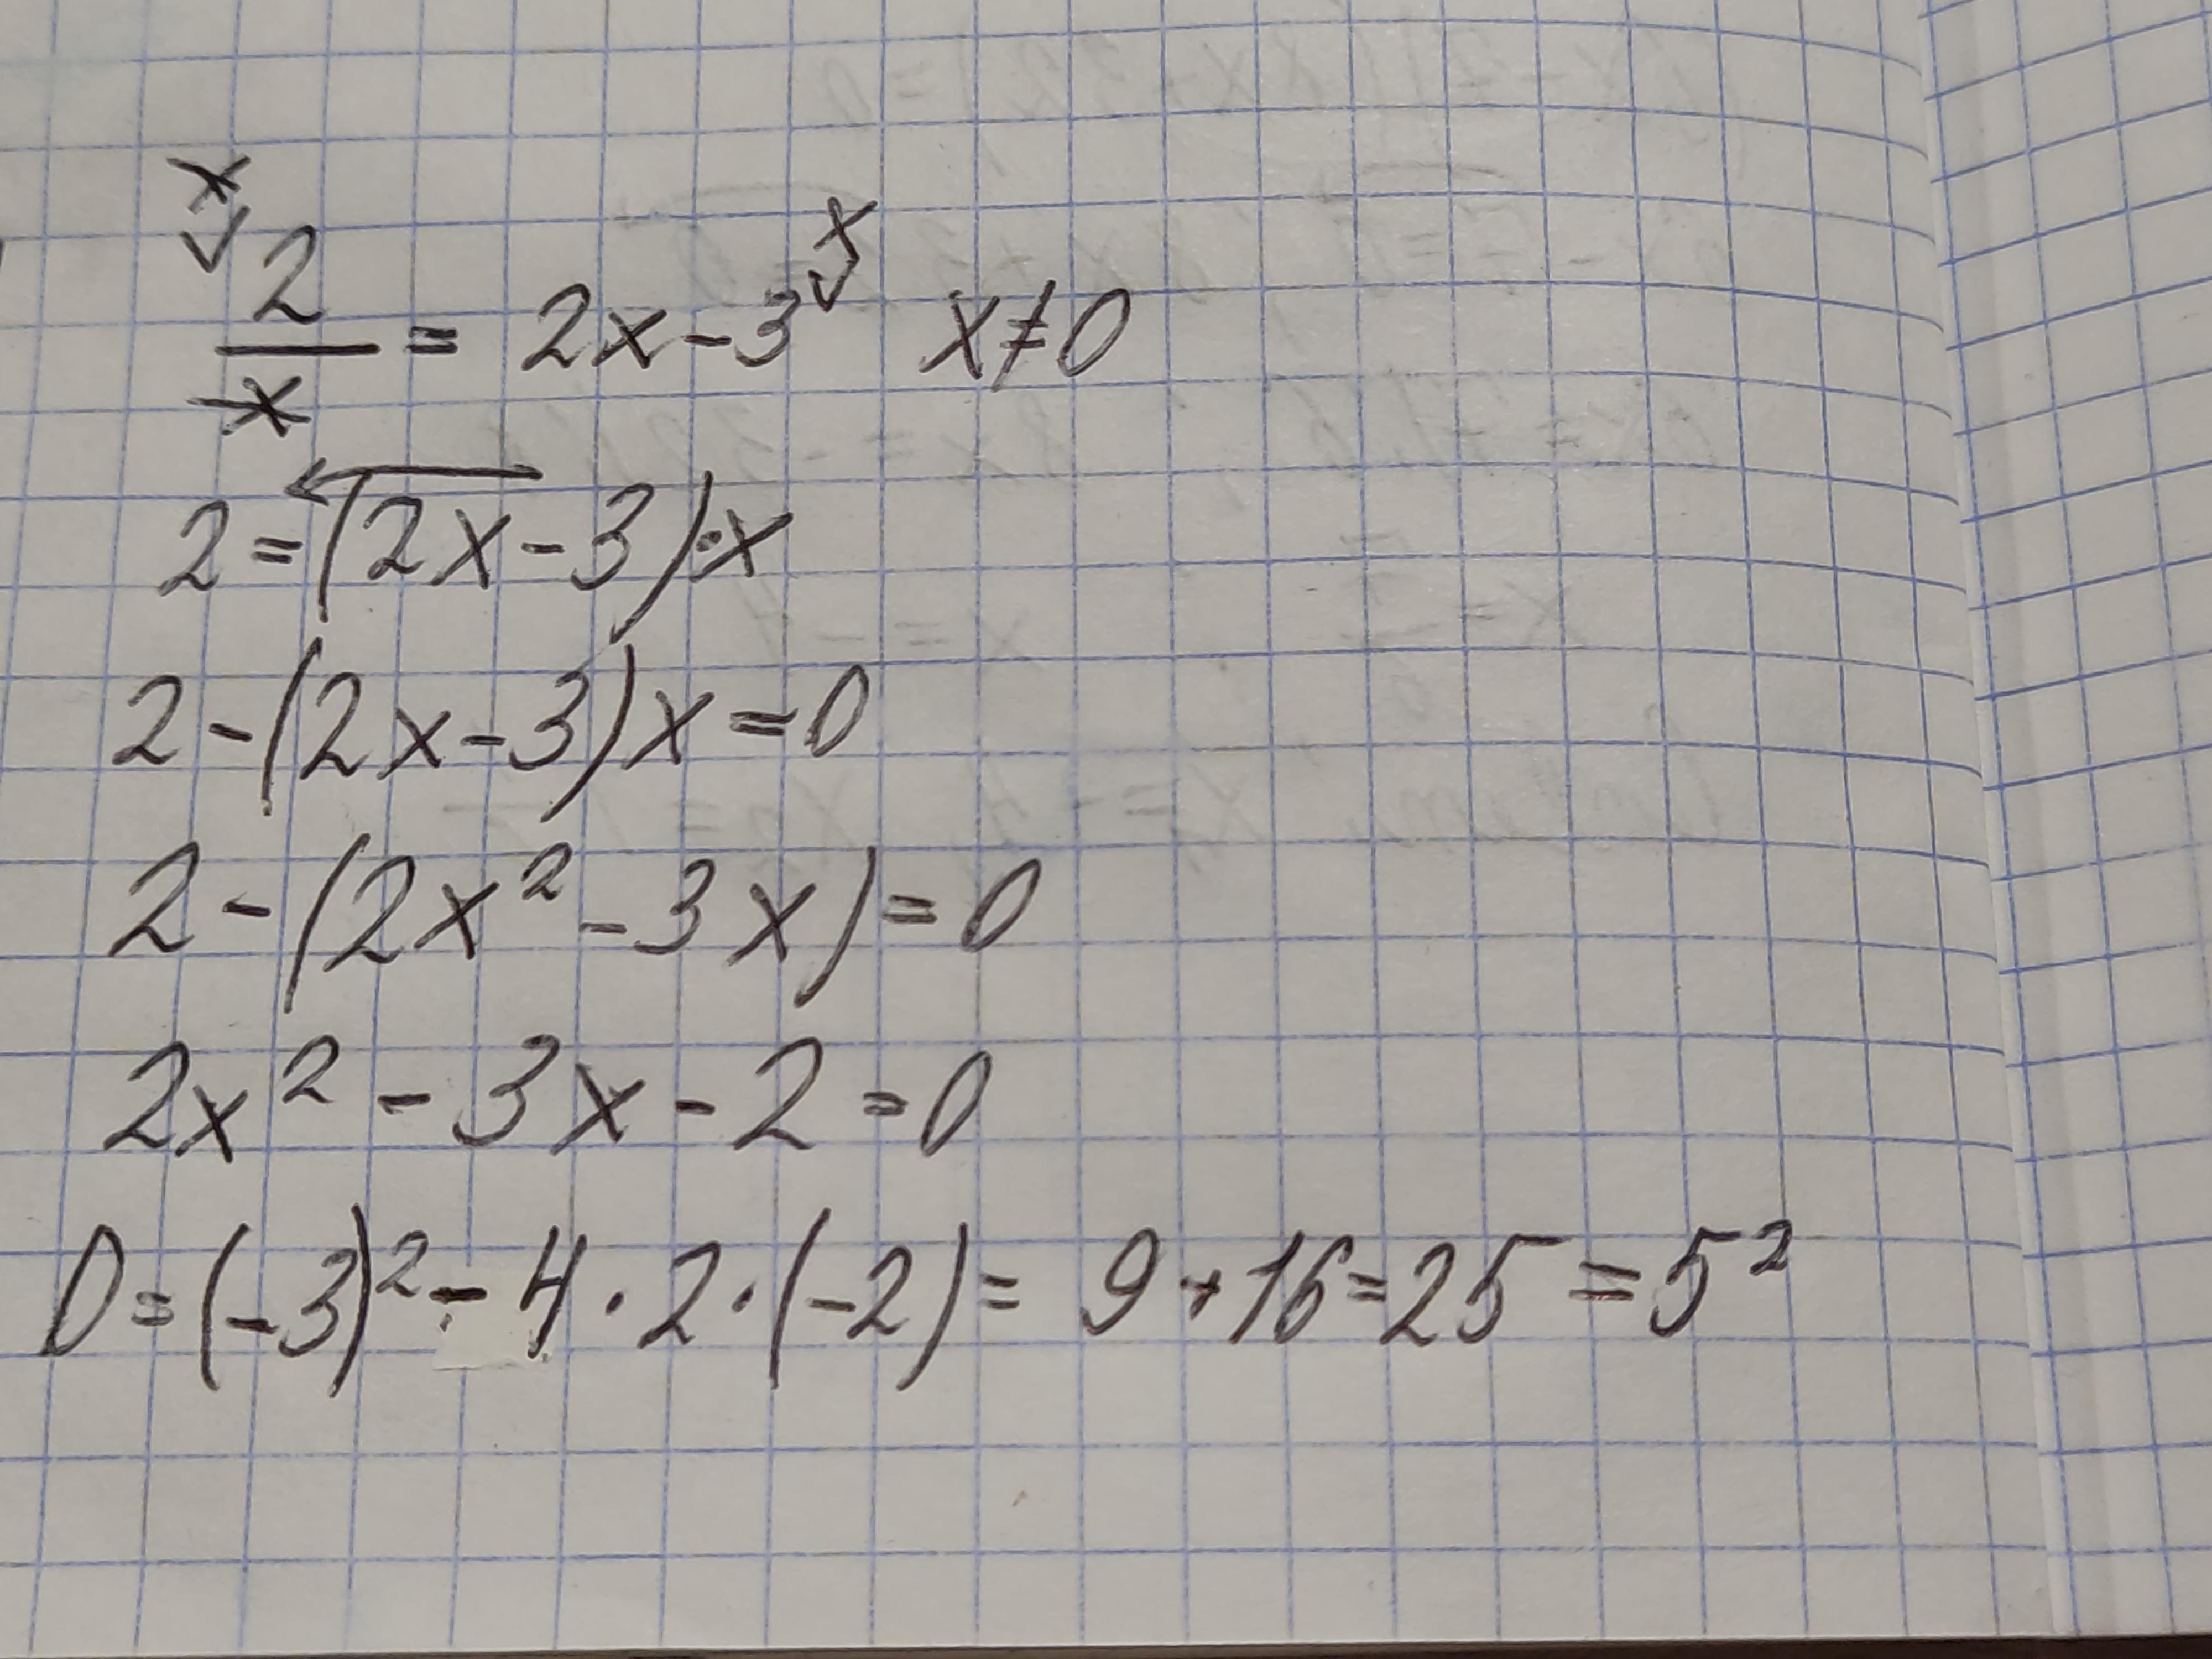 x x
2/x = 2x-3 x≠0
2=(2x-3)·x
2-(2x-3)x=0
2-(2x²-3x)=0
2x²-3x-2=0
D=(-3)²-4·2·(-2)= 9+16=25=5²